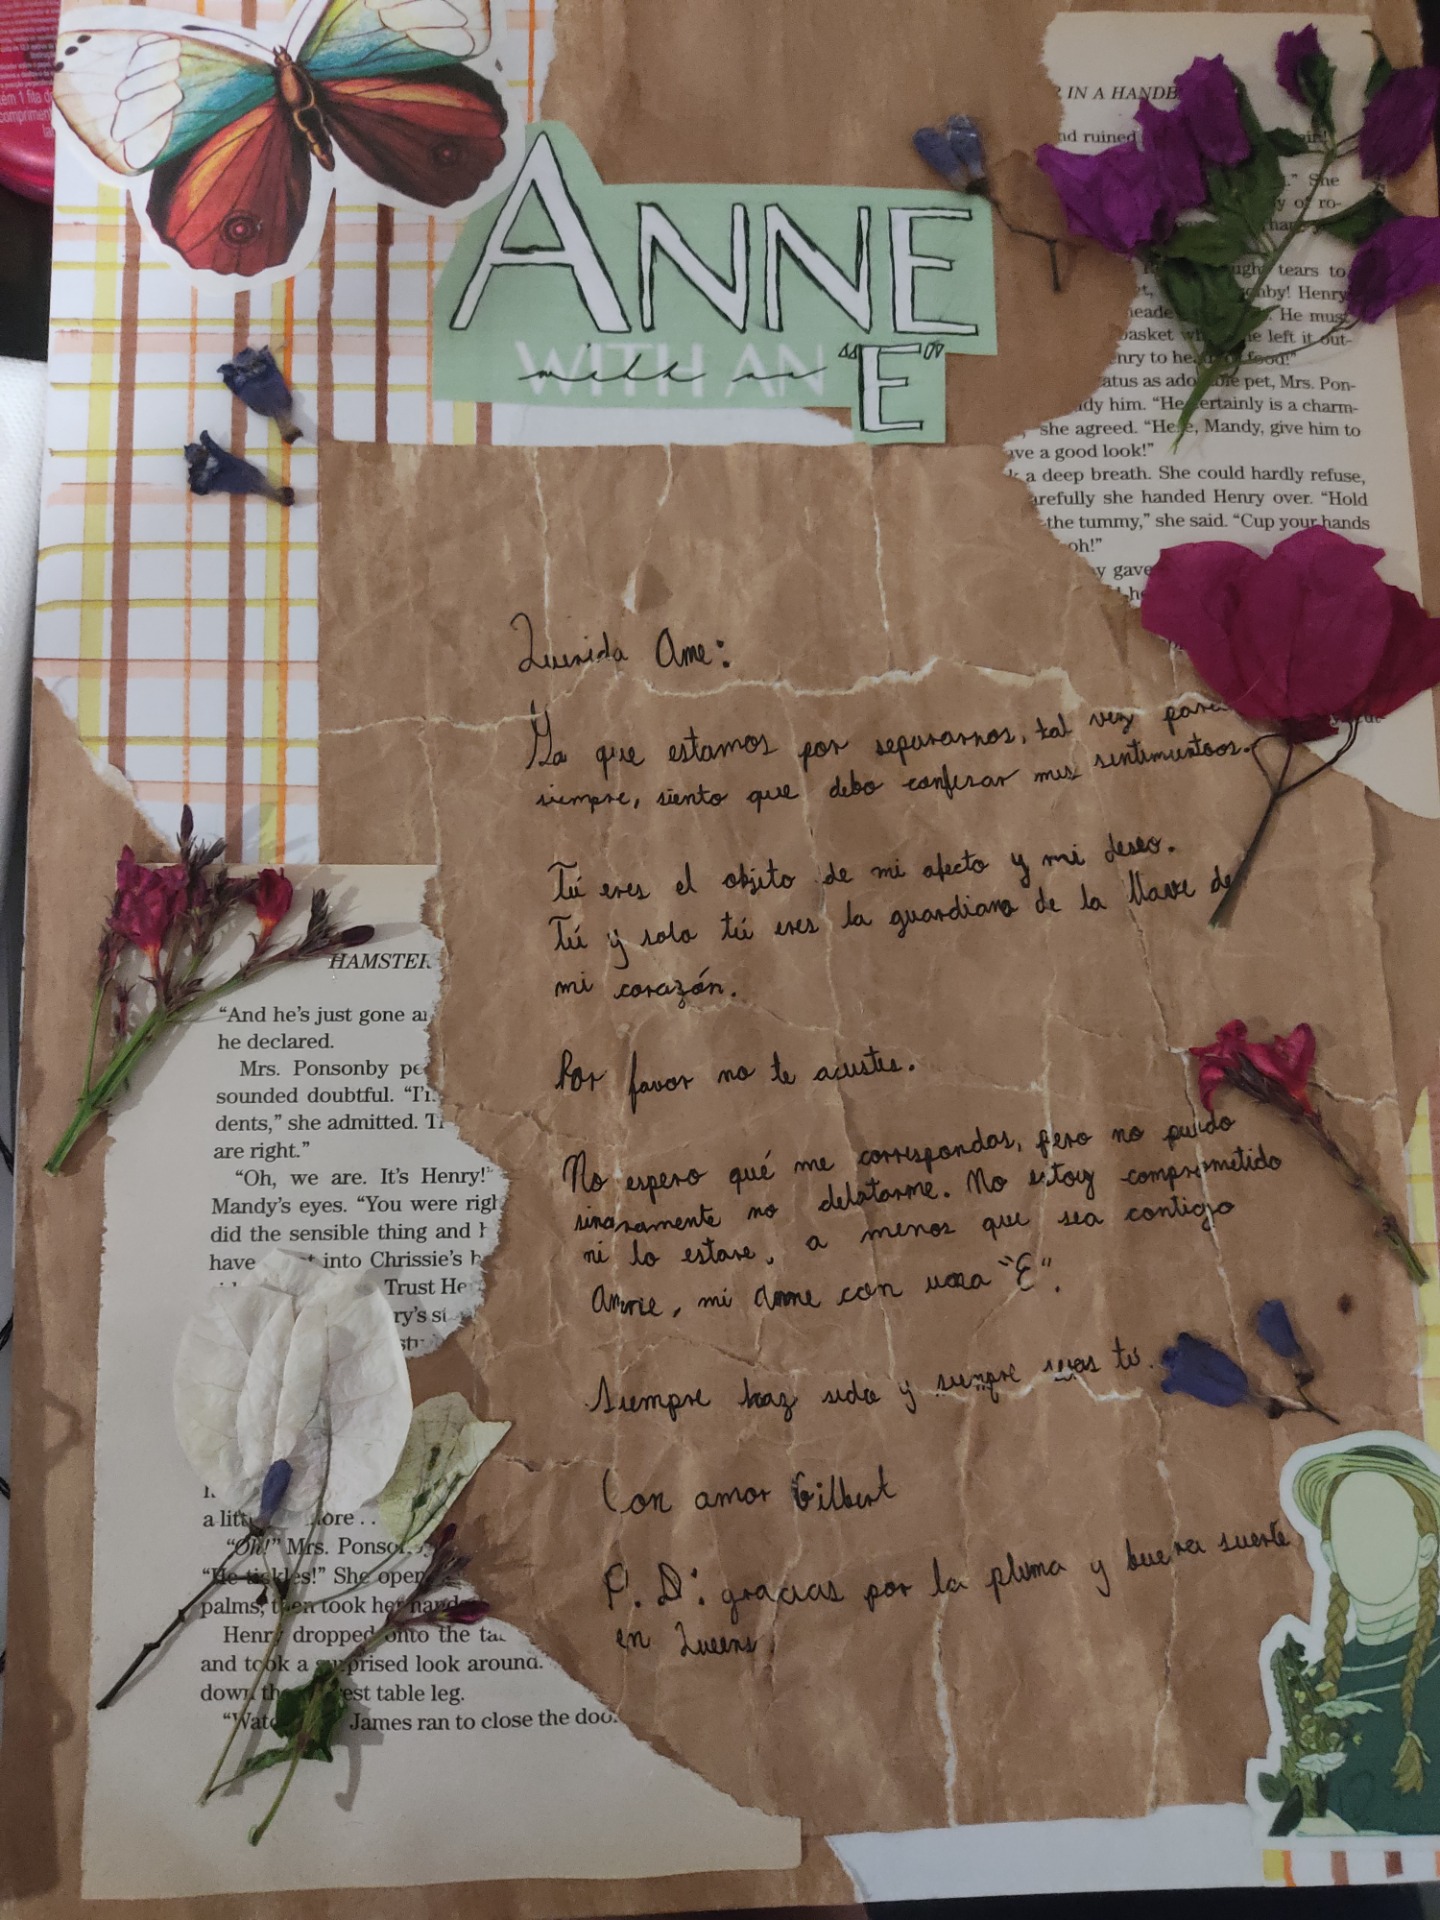 ANNE
WITH AN "E"
R IN A HANDB
nd ruined
." She
y of ro-
tears to
nby! Henry
. He must
basket left it out-
nry to food!"
atus as pet, Mrs. Pon-
dy him. "He certainly is a charm-
," she agreed. "Here, Mandy, give him to
ave a good look!"
k a deep breath. She could hardly refuse,
arefully she handed Henry over. "Hold
the tummy," she said. "Cup your hands
oh!"
y gave
Querida Anne:
Ya que estamos por separarnos, tal vez para
siempre, siento que debo confesar mis sentimientos.
Tú eres el objeto de mi afecto y mi deseo.
Tú y solo tú eres la guardiana de la llave de
mi corazón.
Por favor no te asustes.
No espero qué me correspondas, pero no puedo
sinceramente no delatarme. No estoy comprometido
ni lo estare, a menos que sea contigo
Anne, mi Anne con una "E".
Siempre haz sido y siempre seras tú.
Con amor Gilbert
P.D: gracias por la pluma y buena suerte
en Queens.
HAMSTER
"And he's just gone a
he declared.
Mrs. Ponsonby pe
sounded doubtful. "I'
dents," she admitted. T
are right."
"Oh, we are. It's Henry!"
Mandy's eyes. "You were rig
did the sensible thing and h
have into Chrissie's h
Trust He
ry's st
a litt ore . .
"Oh!" Mrs. Ponso
"He tickles!" She open
palms, then took her hand
Henry dropped onto the ta
and took a surprised look around.
down the est table leg.
"Wat James ran to close the doo